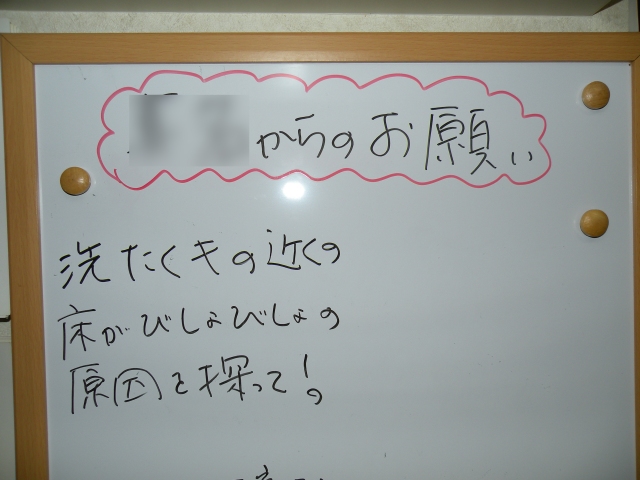 からのお願い
洗たくキの近くの
床がびしょびしょの
原因を探って!